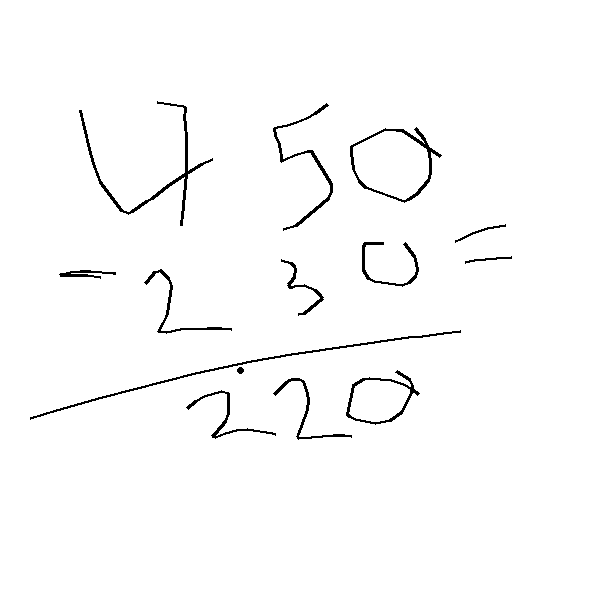 450
- 230 =
220